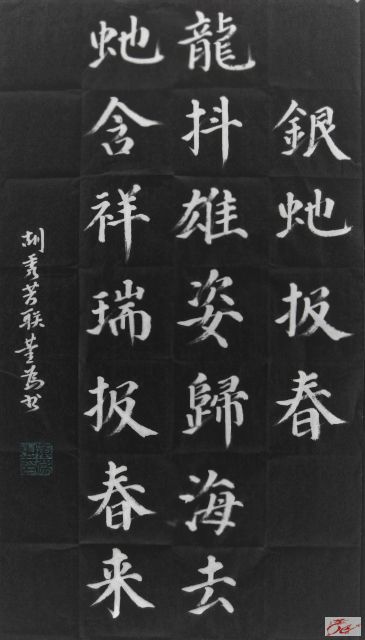 銀虵报春
龍抖雄姿歸海去
虵含祥瑞报春来
胡秀芳联董為书